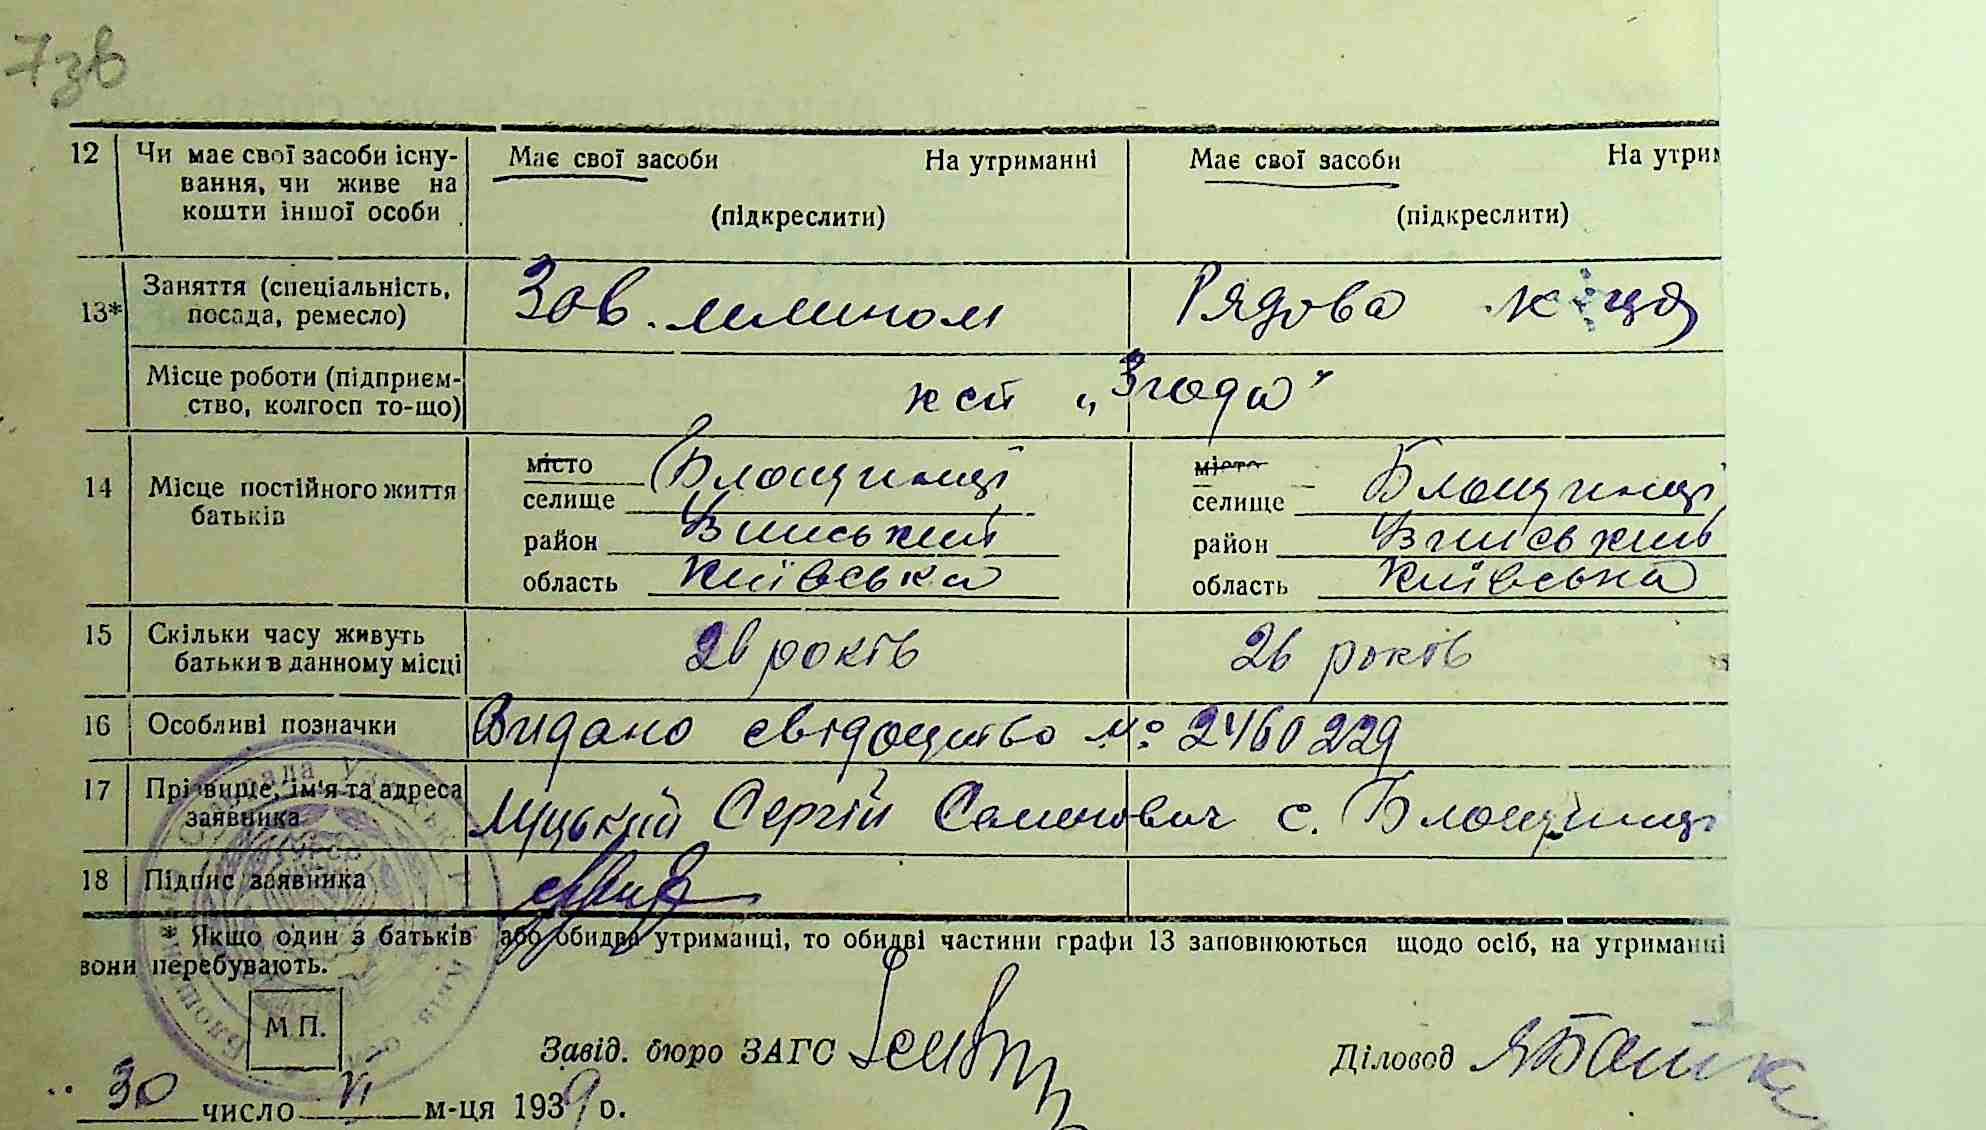 7зв
12 Чи має свої засоби існу- Має свої засоби На утриманні Має свої засоби На утрим
вання, чи живе на
кошти іншої особи (підкреслити) (підкреслити)
13* Заняття (спеціальність, Зав. млином Рядова к-ця
посада, ремесло)
Місце роботи (підприєм- кст „Згода"
ство, колгосп то-що)
14 Місце постійного життя місто Блощинці місто Блощинці
батьків селище селище
район район
область Київська область Київська
15 Скільки часу живуть 26 років 26 років
батьки в данному місці
16 Особливі позначки Видано свідоцтво № 2460229
17 Прізвище, ім'я та адреса Луцький Сергій Семенович с. Блощинці
заявника
18 Підпис заявника
* Якщо один з батьків або обидва утриманці, то обидві частини графи 13 заповнюються щодо осіб, на утриманні
вони перебувають.
М.П.
Завід. бюро ЗАГС Діловод
30 число VI м-ця 1939 р.